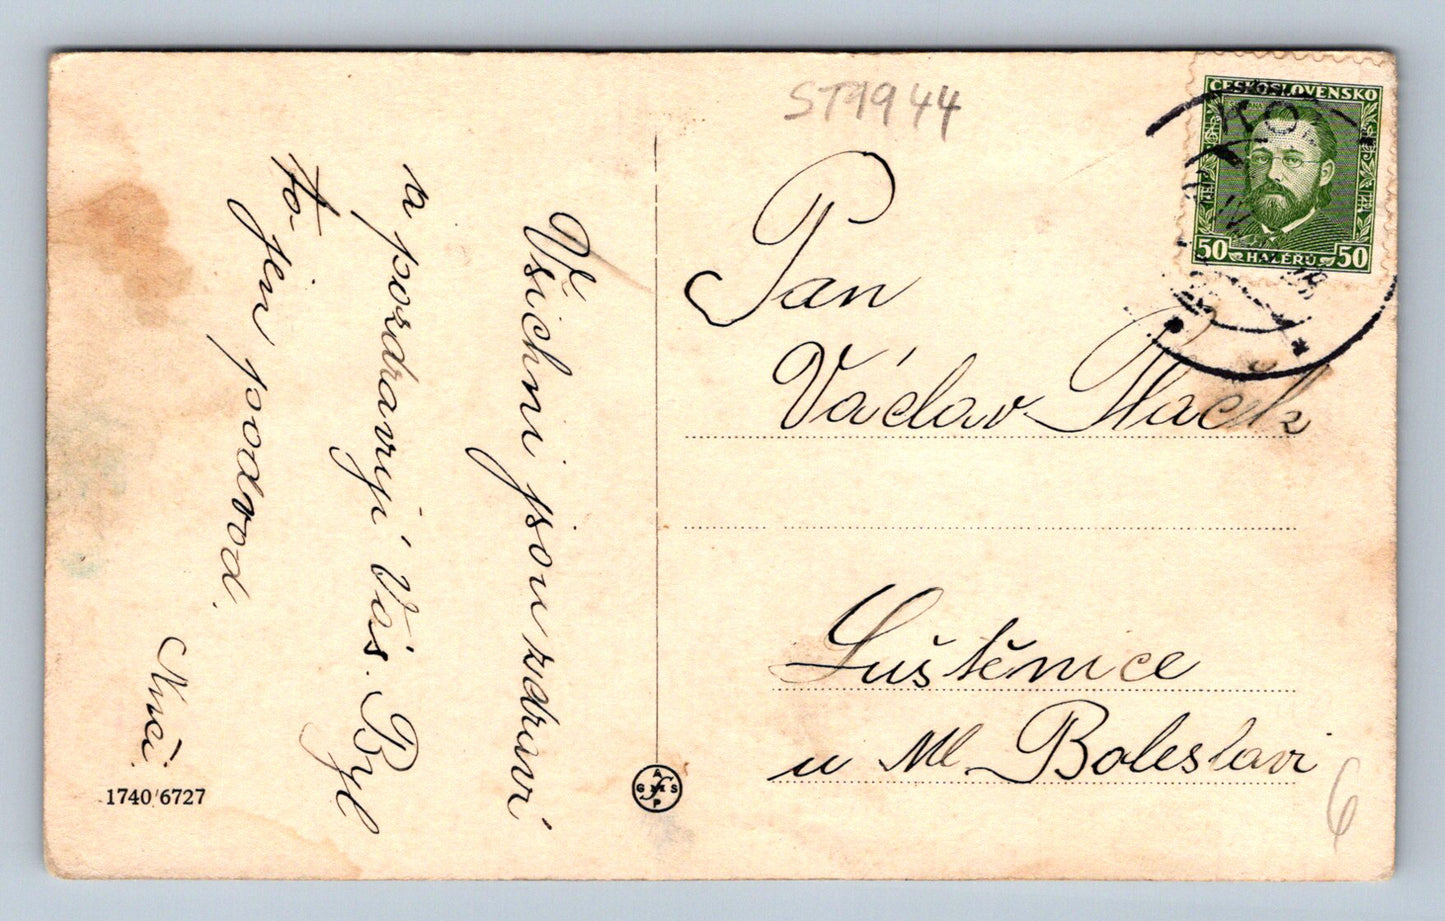 ST1944
ČESKOSLOVENSKO
50 HALÉRŮ 50
Pan
Václav Placík
Luštěnice
u Ml. Boleslavi
6
Všichni jsou zdraví
a pozdravují Vás. Byl
to jen podvod.
1740/6727
A
G S
P